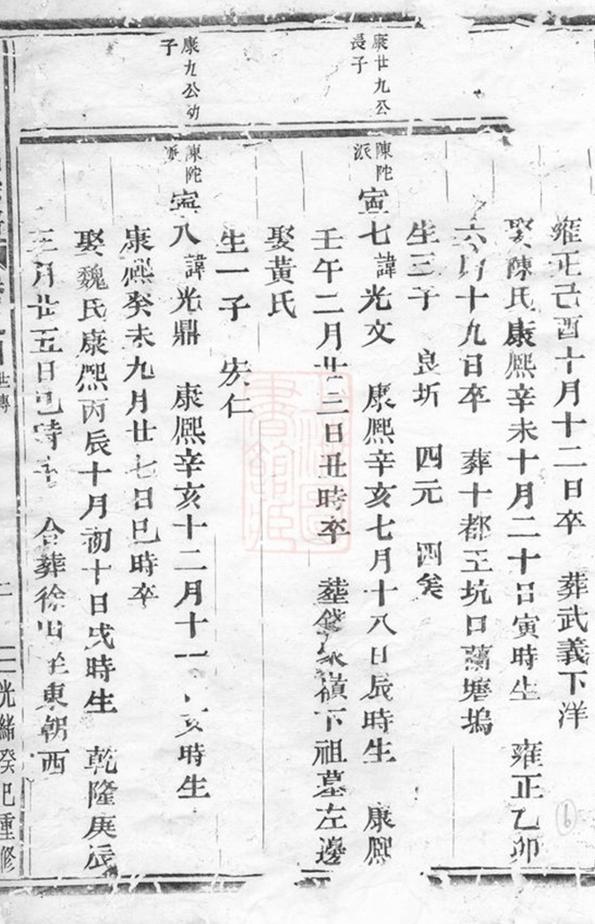 雍正己酉十月十二日卒 葬武義下洋
娶陳氏康熙辛未十月二十日寅時生 雍正乙卯
六月十九日卒 葬十都王坑口蕩塘塢
生三子 良圻 四元 四矣
康廿九公
長子
陳陀
派
寅七諱光文 康熙辛亥七月十八日辰時生 康熙
壬午二月廿三日丑時卒 塟 嶺下祖墓左邊
娶黃氏
生一子 宏仁
康九公幼
子
陳陀
派
寅八諱光鼎 康熙辛亥十二月十一 亥時生
康熙癸未九月廿七日巳時卒
娶魏氏康熙丙辰十月初十日戌時生 乾隆庚辰
三月廿五日巳時卒 合葬徐 東朝西
世傳
光緒癸巳重修
6